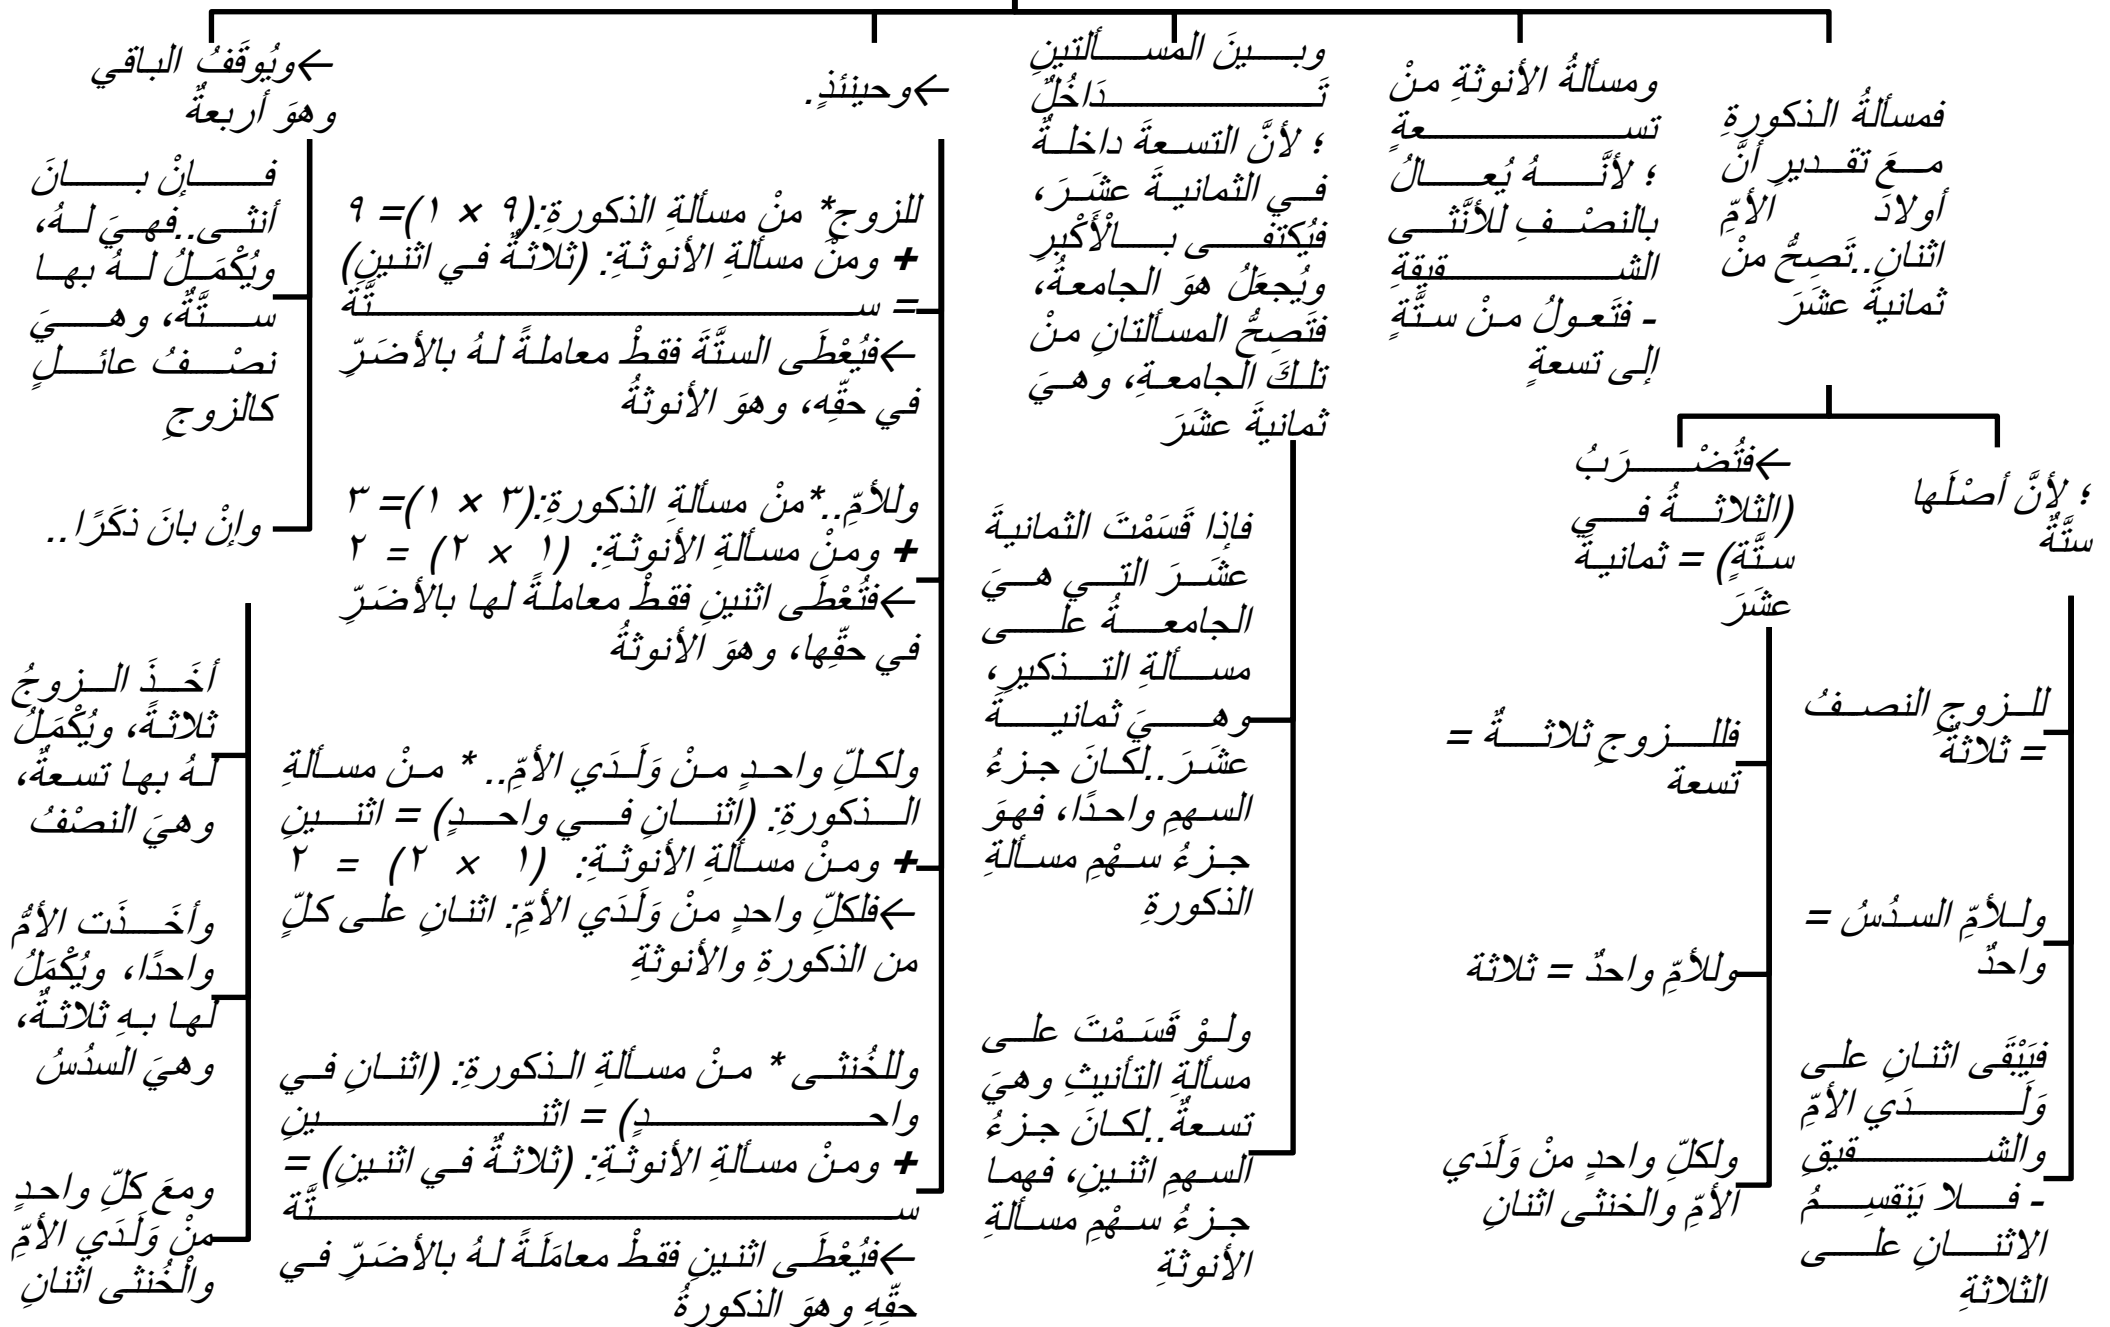 فمسألةُ الذكورةِ
مـعَ تقـديرِ أنَّ
أولادَ الأمِّ
اثنانِ..تَصِحُّ منْ
ثمانيةَ عشَرَ
؛ لأنَّ أصْلَها
ستَّةٌ
للـزوجِ النصـفُ
= ثلاثةٌ
ولـلأمِّ السدُسُ =
واحدٌ
فيَبْقَى اثنـانِ علـى
وَلَـدَي الأمِّ
والشـقيقِ
- فـلا يَنقسِـمُ
الاثنـانِ علـى
الثلاثةِ
←فتُضْـرَبُ
(الثلاثـةُ فـي
ستَّةٍ) = ثمانيـةَ
عشَرَ
فللـزوجِ ثلاثـةٌ =
تسعة
وللأمِّ واحدٌ = ثلاثة
ولكلِّ واحدٍ منْ وَلَدَي
الأمِّ والخنثى اثنانِ
ومسألةُ الأنوثةِ منْ
تسـعةٍ
؛ لأنَّـهُ يُعـالُ
بالنصْـفِ للأنَّثـى
الشـقيقةِ
- فتَعولُ مـنْ ستَّةٍ
إلى تسعةٍ
وبـينَ المسـألتينِ
تَـدَاخُلٌ
؛ لأنَّ التسـعةَ داخلـةٌ
فـي الثمانيـةَ عشَـرَ،
فيُكتفـى بـالْأَكْبرِ
ويُجعَلُ هوَ الجامعةُ،
فتَصِحُّ المسألتانِ مـنْ
تلـكَ الجامعـةِ، وهـيَ
ثمانيةَ عشَرَ
فإذا قَسَمْتَ الثمانيةَ
عشَـرَ التـي هـيَ
الجامعـةُ علـى
مسـألةِ التـذكيرِ،
وهـيَ ثمانيـةَ
عشَرَ..لكـانَ جـزءُ
السهمِ واحدًا، فهوَ
جـزءُ سـهْمِ مسـألةِ
الذكورةِ
ولـوْ قَسَـمْتَ علـى
مسألةِ التأنيثِ وهيَ
تسـعةٌ..لكـانَ جـزءُ
السـهمِ اثنـينِ، فهمـا
جـزءُ سـهْمِ مسـألةِ
الأنوثةِ
←وحينئذٍ.
للزوجِ* منْ مسألةِ الذكورةِ:(٩ × ١)= ٩
+ ومنْ مسألةِ الأنوثةِ: (ثلاثةٌ في اثنينِ)
= سـتَّةٌ
←فيُعْطَى الستَّةَ فقطْ معاملةً لهُ بالأضَرِّ
في حقِّه، وهوَ الأنوثةُ
وللأمِّ..*منْ مسألةِ الذكورةِ:(٣ × ١)= ٣
+ ومنْ مسألةِ الأنوثةِ: (١ × ٢) = ٢
←فتُعْطَى اثنينِ فقطْ معاملةً لها بالأضَرِّ
في حقِّها، وهوَ الأنوثةُ
ولكـلِّ واحـدٍ مـنْ وَلَـدَي الأمِّ.. * مـنْ مسـألةِ
الـذكورةِ: (اثنـانِ فـي واحـدٍ) = اثنـينِ
+ ومـنْ مسـألةِ الأنوثـةِ: (١ × ٢) = ٢
←فلكلِّ واحدٍ منْ وَلَدَي الأمِّ: اثنانِ علـى كلٍّ
من الذكورةِ والأنوثةِ
وللخُنثـى * مـنْ مسـألةِ الـذكورةِ: (اثنـانِ فـي
واحـدٍ) = اثنـينِ
+ ومـنْ مسـألةِ الأنوثـةِ: (ثلاثةٌ فـي اثنـينِ) =
سـتَّة
←فيُعْطَـى اثنـينِ فقـطْ معامَلَةً لـهُ بالأضَـرِّ فـي
حقِّهِ وهوَ الذكورةُ
←ويُوقَفُ الباقي
وهوَ أربعةٌ
فـإنْ بـانَ
أنثـى..فهـيَ لـهُ،
ويُكْمَـلُ لـهُ بهـا
سـتَّةٌ، وهـيَ
نصْـفُ عائـلٍ
كالزوجِ
وإنْ بانَ ذكَرًا..
أخَـذَ الـزوجُ
ثلاثةً، ويُكْمَلُ
لهُ بها تسعةٌ،
وهيَ النصْفُ
وأخَـذَت الأمُّ
واحدًا، ويُكْمَلُ
لهـا بـهِ ثلاثـةٌ،
وهيَ السدُسُ
ومعَ كلِّ واحـدٍ
منْ وَلَدَي الأمِّ
والْخُنثى اثنانِ